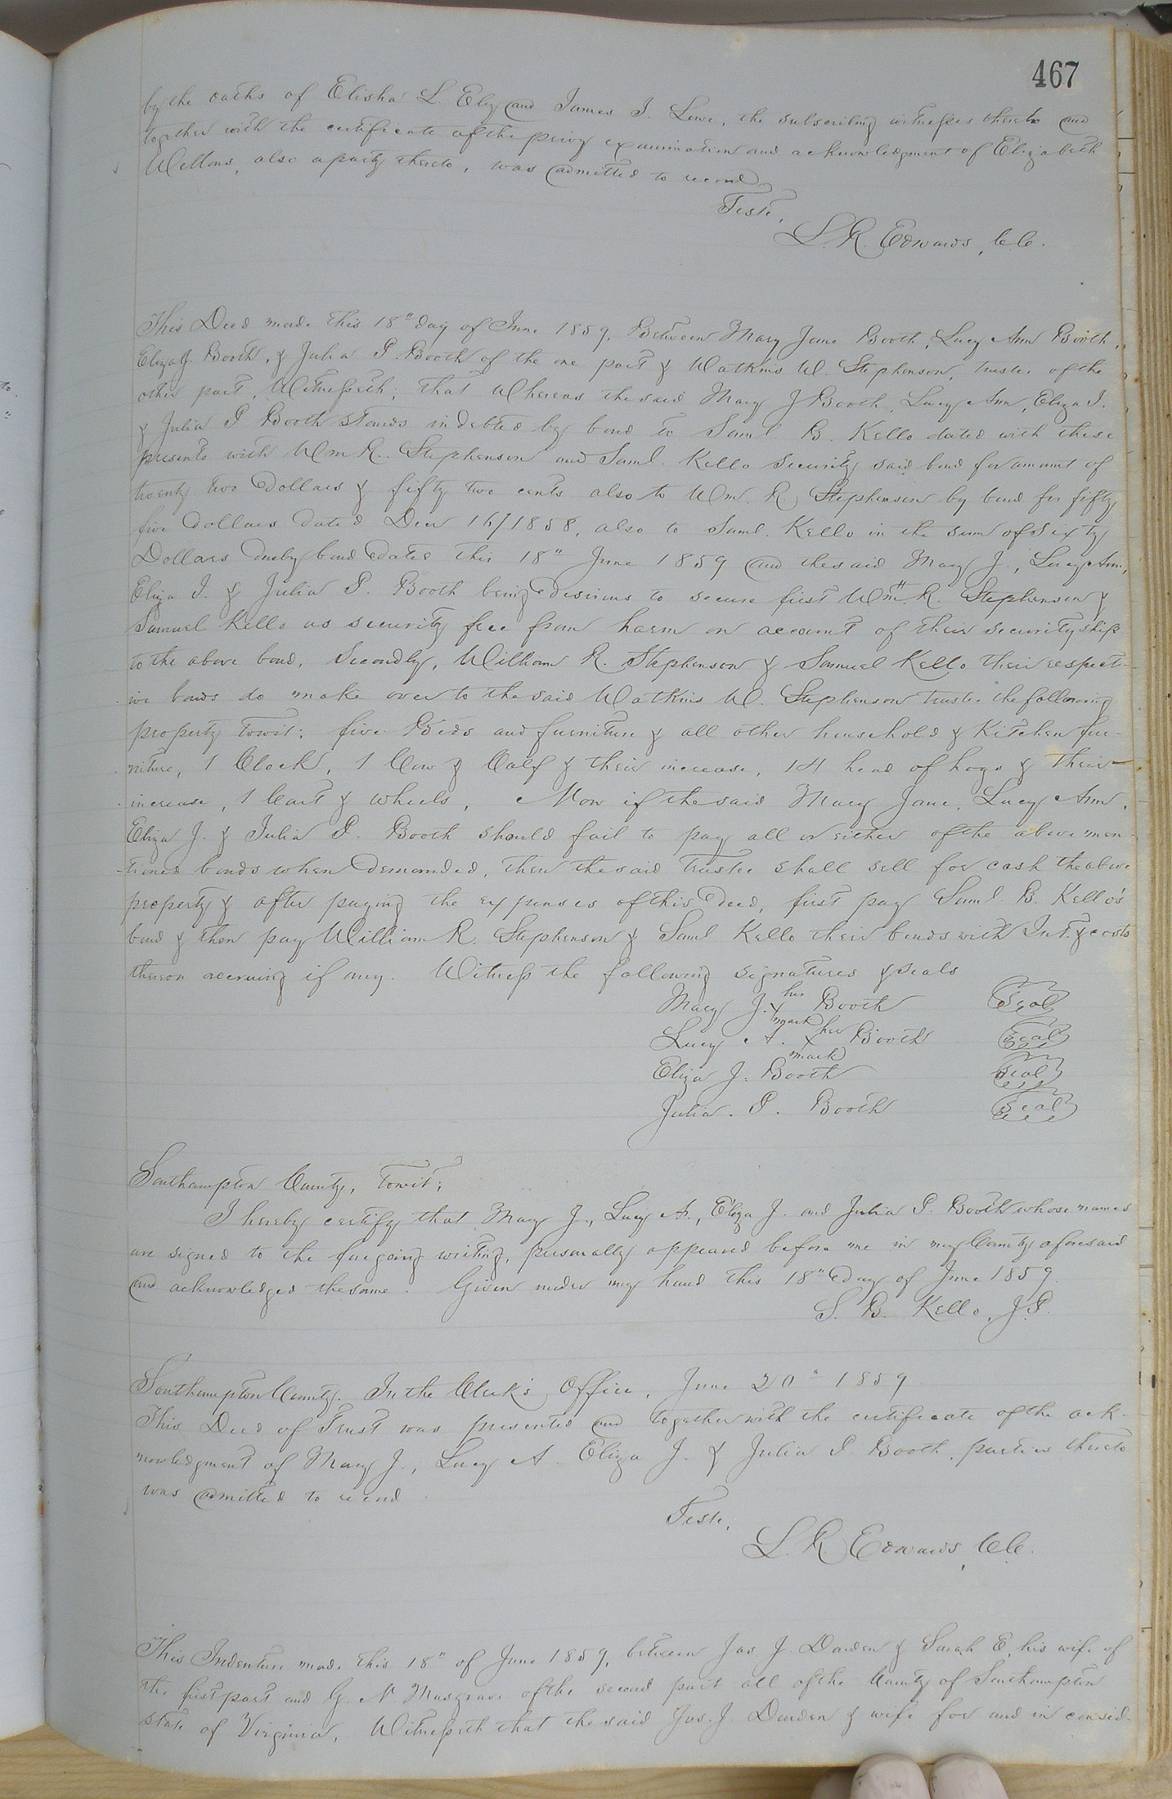 467
by the oaths of Elisha L. Ely and James J. Lowe, the subscribing witnesses thereto and
together with the certificate of the privy examination and acknowledgment of Elizabeth
Wellons, also a party thereto, was admitted to record
Teste,
L. R. Edwards, C.C.
This Deed made this 18" day of June 1859, Between Mary Jane Booth, Lucy Ann Booth,
Eliza J. Booth, & Julia P. Booth of the one part & Watkins W. Stephenson, trustee of the
other part, Witnesseth, that Whereas the said Mary J Booth, Lucy Ann, Eliza J.
& Julia P Booth stands indebted by bond to Saml B. Kello dated with these
presents with Wm R. Stephenson and Saml. Kello security said bond for amount of
twenty two Dollars & fifty two cents also to Wm. R. Stephenson by bond for fifty
five Dollars dated Decr 16/1858, also to Saml. Kello in the sum of Sixty
Dollars due by bond dated this 18" June 1859 and the said Mary J., Lucy Ann,
Eliza J. & Julia P. Booth being desirous to secure first Wm R. Stephenson &
Samuel Kello as security free from harm on account of their securityship
to the above bond, Secondly, William R. Stephenson & Samuel Kello their respect-
ive bonds do make over to the said Watkins W. Stephenson trustee the following
property towit; five Beds and furniture & all other household & Kitchen fur-
niture, 1 Clock, 1 Cow & Calf & their increase, 14 head of hogs & their
increase, 1 Cart & wheels, Now if the said Mary Jane, Lucy Ann,
Eliza J. & Julia P. Booth should fail to pay all or either of the above men-
tioned bonds when demanded, then the said trustee shall sell for cash the above
property & after paying the expenses of this Deed, first pay Saml B. Kello's
bond & then pay William R. Stephenson & Saml Kello their bonds with Int. & costs
thereon accruing if any. Witness the following signatures & seals
Mary J. her x mark Booth Seal
Lucy A. her x mark Booth Seal
Eliza J. Booth Seal
Julia. P. Booth Seal
Southampton County, towit;
I hereby certify that Mary J., Lucy A., Eliza J. and Julia P. Booth whose names
are signed to the foregoing writing, personally appeared before me in my County aforesaid
and acknowledged the same. Given under my hand this 18" day of June 1859.
S. B. Kello, J.P.
Southampton County. In the Clerk's Office, June 20" 1859
This Deed of Trust was presented and together with the certificate of the ack-
nowledgment of Mary J., Lucy A. Eliza J. & Julia P. Booth, parties thereto
was admitted to record
Teste,
L. R. Edwards, C.C.
This Indenture made this 18" of June 1859, between Jas. J. Darden & Sarah E. his wife of
the first part and G. N Musgrave of the second part all of the County of Southampton
state of Virginia, Witnesseth that the said Jas. J. Darden & wife for and in consid-